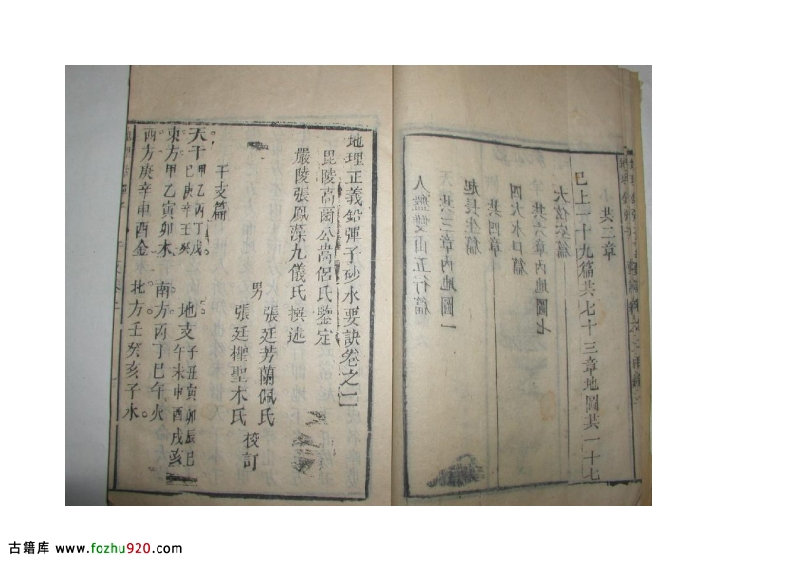 共二章
已上一十九篇共七十三章地圖共一十七
大攱穴篇
共六章內地圖七
四大水口篇
共四章
起長生篇
天共三章內地圖一
人盤雙山五行篇
地理正義鉛彈子砂水要訣卷之二
毘陵高爾公嵩侶氏鑒定
嚴陵張鳳藻九儀氏撰述
男張廷芳蘭佩氏
張廷樨聖木氏
校訂
干支篇
天干甲乙丙丁戊己庚辛壬癸
地支子丑寅卯辰巳午未申酉戌亥
東方甲乙寅卯木
南方丙丁巳午火
西方庚辛申酉金
北方壬癸亥子水
古籍库 www.fozhu920.com